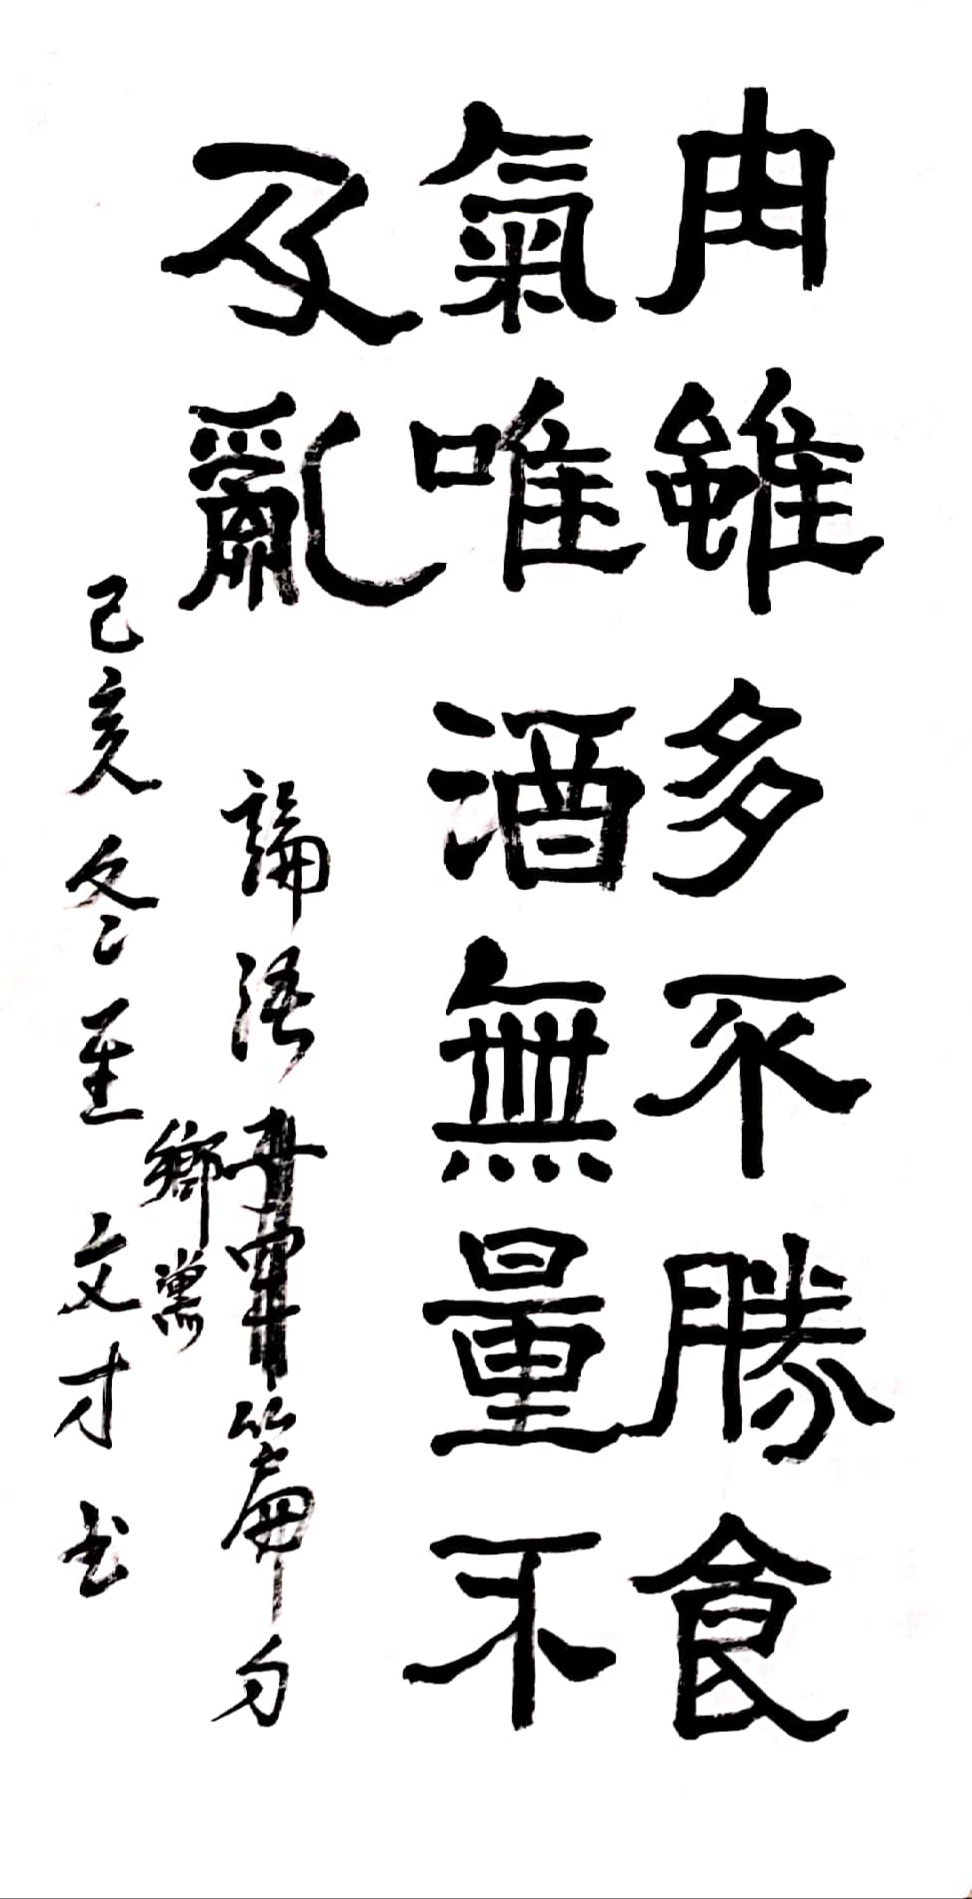 肉雖多不勝食
氣唯酒無量不
及亂
論語子罕篇句
鄉黨
己亥冬至文才书